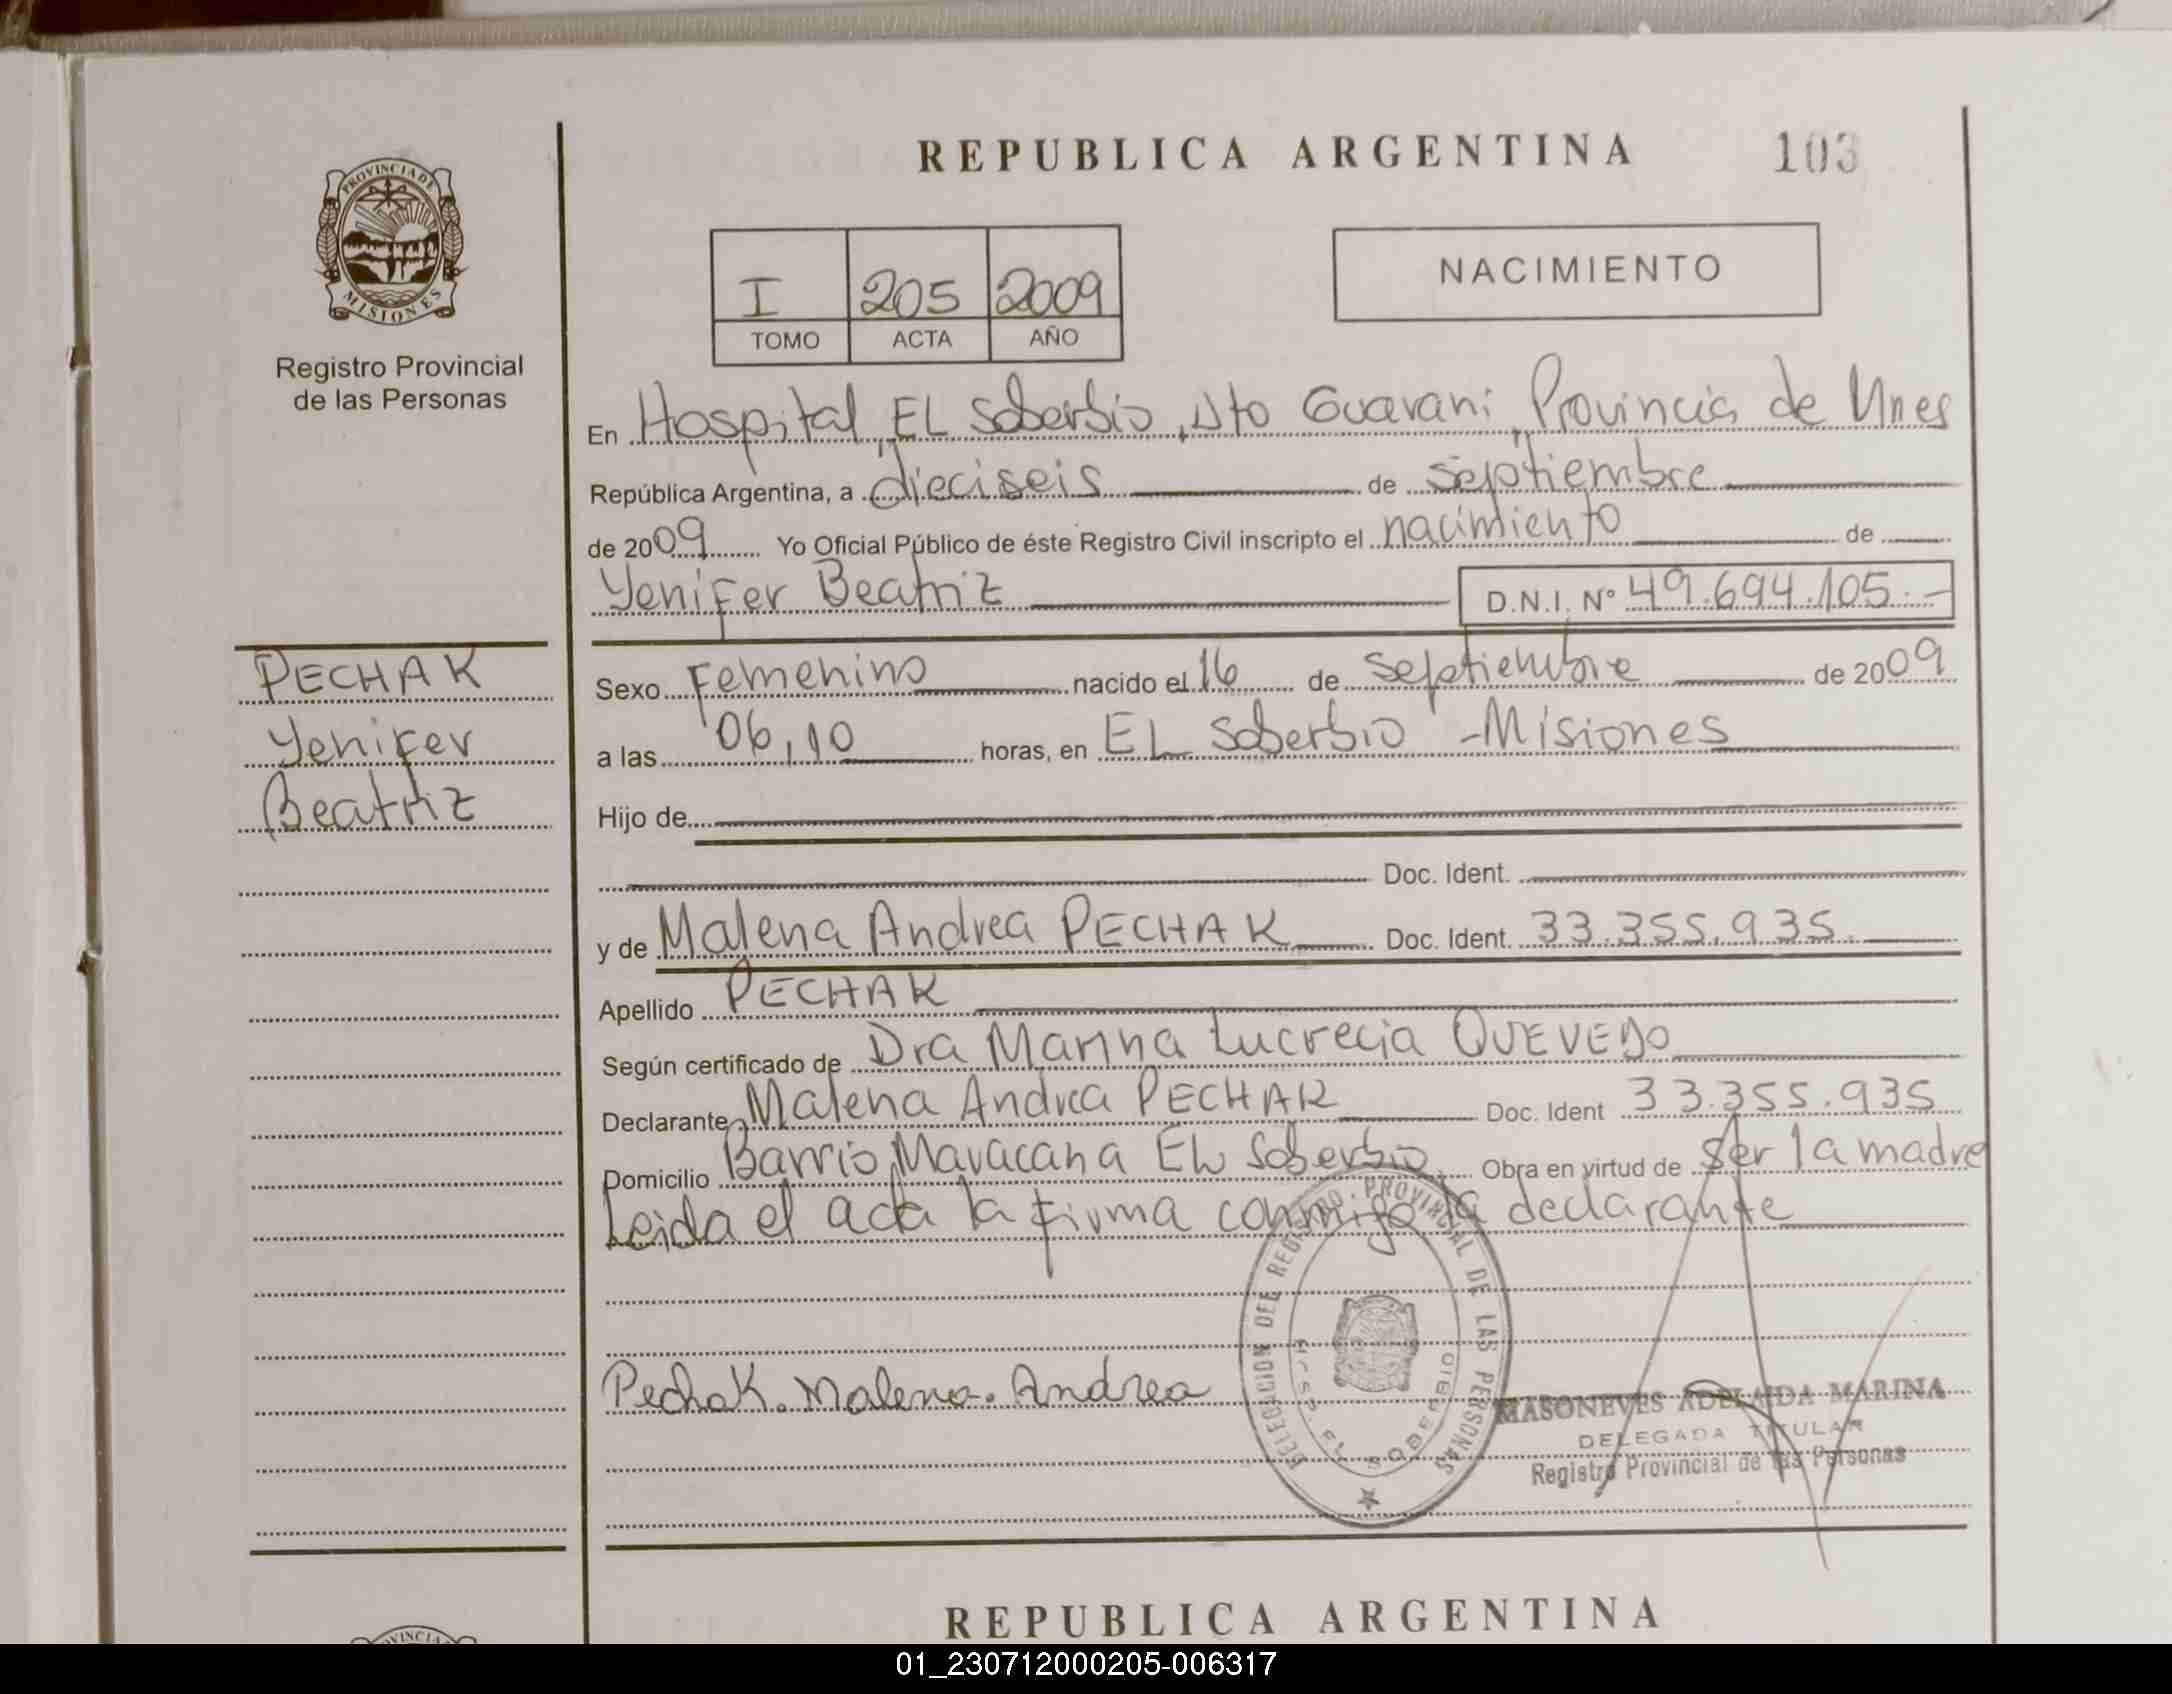 REPUBLICA ARGENTINA 103
PROVINCIA DE
MISIONES
Registro Provincial
de las Personas
I 205 2009
TOMO ACTA AÑO
NACIMIENTO
En Hospital EL Soberbio, Dto Guarani, Provincia de Mnes
República Argentina, a dieciseis de Septiembre
de 2009 Yo Oficial Público de éste Registro Civil inscripto el nacimiento de
Yenifer Beatriz D.N.I. Nº 49.694.105.-
PECHAK
Yenifer
Beatriz
Sexo Femenino nacido el 16 de Septiembre de 2009
a las 06,10 horas, en EL Soberbio - Misiones
Hijo de
Doc. Ident.
y de Malena Andrea PECHAK Doc. Ident. 33.355.935.
Apellido PECHAK
Según certificado de Dra Marina Lucrecia QUEVEDO
Declarante Malena Andrea PECHAK Doc. Ident 33.355.935
Domicilio Barrio Maracana EL Soberbio Obra en virtud de Ser la madre
Leida el acta la firma conmigo la declarante
Pechak. Malena. Andrea
DELEGACION DEL REGISTRO PROVINCIAL DE LAS PERSONAS
EL SOBERBIO
MASONEVES ADELAIDA MARINA
DELEGADA TITULAR
Registro Provincial de las Personas
REPUBLICA ARGENTINA
01_230712000205-006317